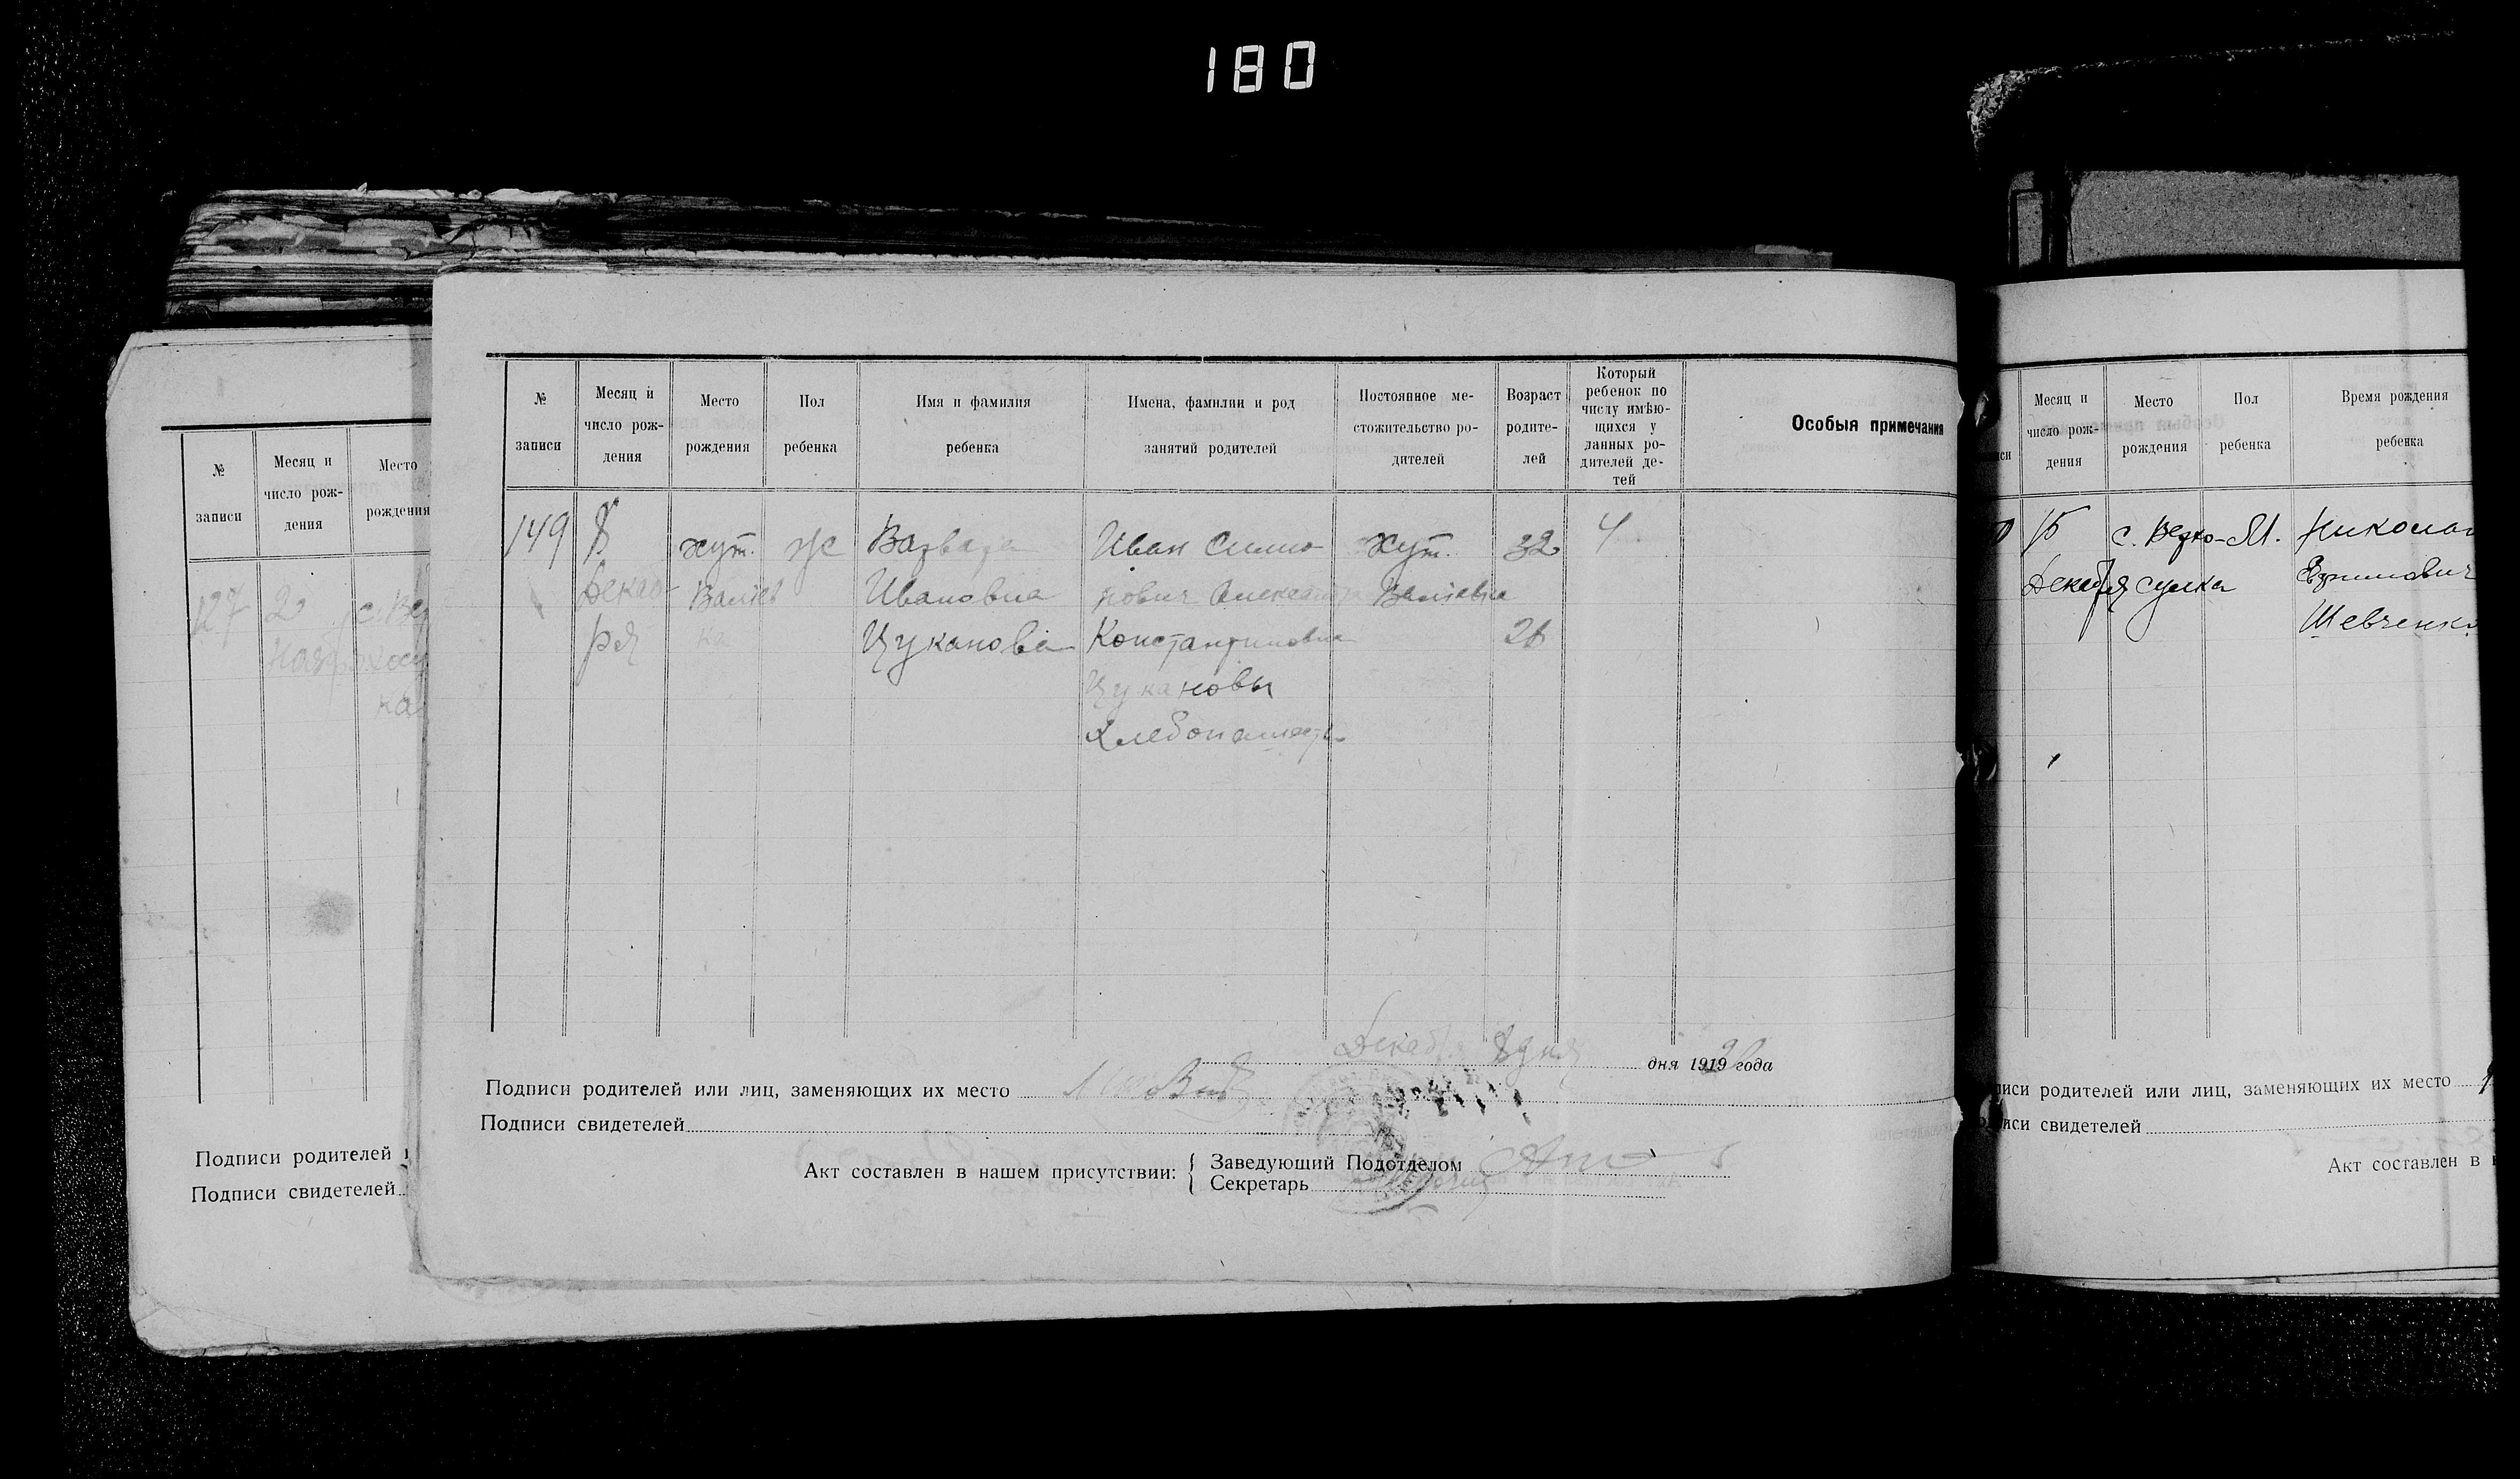 180
№
записи
Месяц и
число рож-
дения
Место
рождения
127
2
с. Вер
ка
Подписи родителей
Подписи свидетелей
№
записи
Месяц и
число рож-
дения
Место
рождения
Пол
ребенка
Имя и фамилия
ребенка
Имена, фамилии и род
занятий родителей
Постоянное ме-
стожительство ро-
дителей
Возраст
родите-
лей
Который
ребенок по
числу имѣю-
щихся у
данных ро-
дителей де-
тей
Особыя примечания
149
8
Декаб-
ря
хут.
ка
ж
Варвара
Ивановна
Цуканова
Иван
Константиновна
Цукановы
хут.
32
4
Декабря 8 дня дня 1919 года
Подписи родителей или лиц, заменяющих их место
Подписи свидетелей
Акт составлен в нашем присутствии:
Заведующий Подотделом
Секретарь
Месяц и
число рож-
дения
Место
рождения
Пол
ребенка
Время рождения
ребенка
15
Декабря
с. Верхо-М.
Шевченко
родителей или лиц, заменяющих их место
свидетелей
Акт составлен в